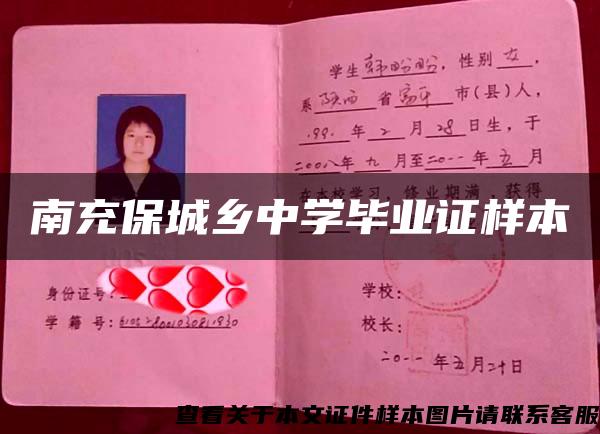 学生韩盼盼,性别女,
系陕西省富平市(县)人,
1991年2月28日生,于
二〇〇八年九月至二〇一一年五月
在本校学习,修业期满,获得
南充保城乡中学毕业证样本
身份证号:
学籍号:
学校:
校长:
二〇一一年五月二十日
查看关于本文证件样本图片请联系客服